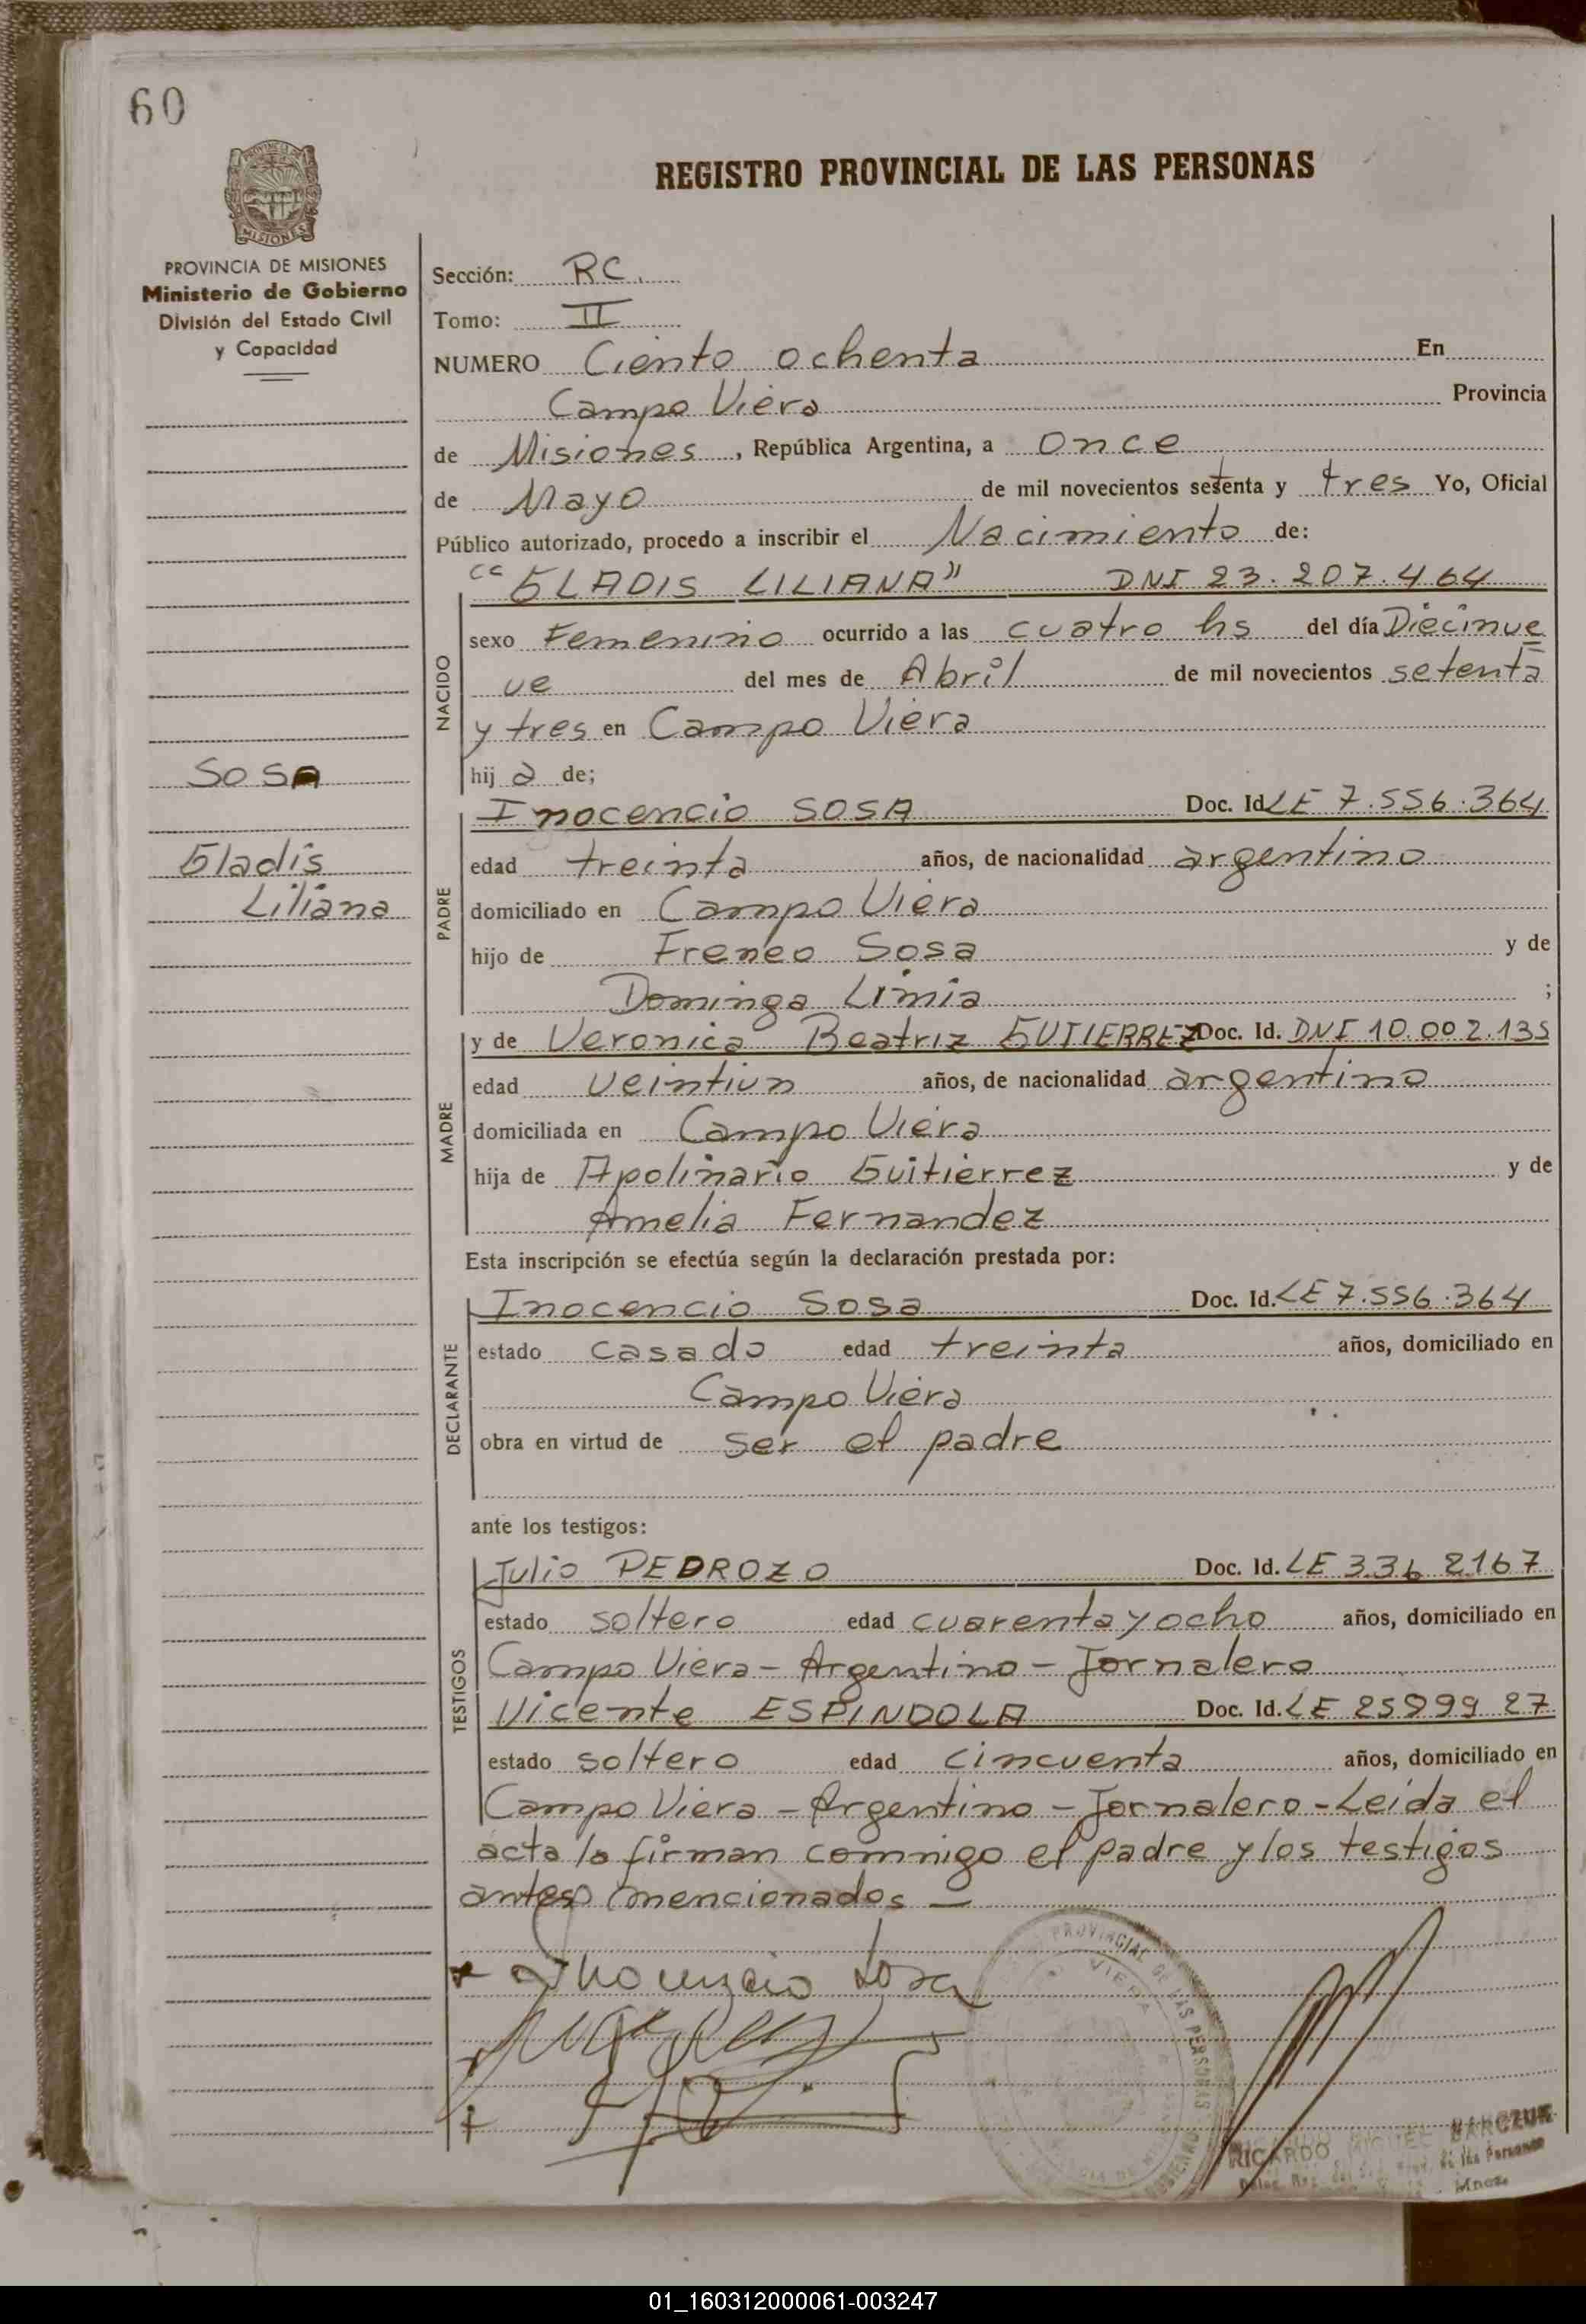 60
REGISTRO PROVINCIAL DE LAS PERSONAS
MISIONES
PROVINCIA DE MISIONES
Ministerio de Gobierno
División del Estado Civil
y Capacidad
Sosa
Gladis
Liliana
Sección: RC.
Tomo: II
NUMERO Ciento ochenta En
Campo Viera Provincia
de Misiones, República Argentina, a once
de Mayo de mil novecientos setenta y tres Yo, Oficial
Público autorizado, procedo a inscribir el Nacimiento de:
"GLADIS LILIANA" DNI 23.207.464
NACIDO
sexo Femenino ocurrido a las cuatro hs del día Diecinue
ve del mes de Abril de mil novecientos setenta
y tres en Campo Viera
hij a de;
PADRE
Inocencio SOSA Doc. Id LE 7.556.364
edad treinta años, de nacionalidad argentino
domiciliado en Campo Viera
hijo de Freneo Sosa y de
Dominga Limia ;
MADRE
y de Veronica Beatriz GUTIERREZ Doc. Id. DNI 10.002.135
edad veintiun años, de nacionalidad argentino
domiciliada en Campo Viera
hija de Apolinario Guitierrez y de
Amelia Fernandez
Esta inscripción se efectúa según la declaración prestada por:
DECLARANTE
Inocencio Sosa Doc. Id. LE 7.556.364
estado casado edad treinta años, domiciliado en
Campo Viera
obra en virtud de ser el padre
ante los testigos:
TESTIGOS
Julio PEDROZO Doc. Id. LE 336 2167
estado soltero edad cuarenta y ocho años, domiciliado en
Campo Viera - Argentino - Jornalero
Vicente ESPINDOLA Doc. Id. LE 25999 27
estado soltero edad cincuenta años, domiciliado en
Campo Viera - Argentino - Jornalero - Leida el
acta la firman comnigo el padre y los testigos
antes mencionados -
PROVINCIAL DE LAS PERSONAS
VIERA
RICARDO MIGUEL BARCZUK
01_160312000061-003247